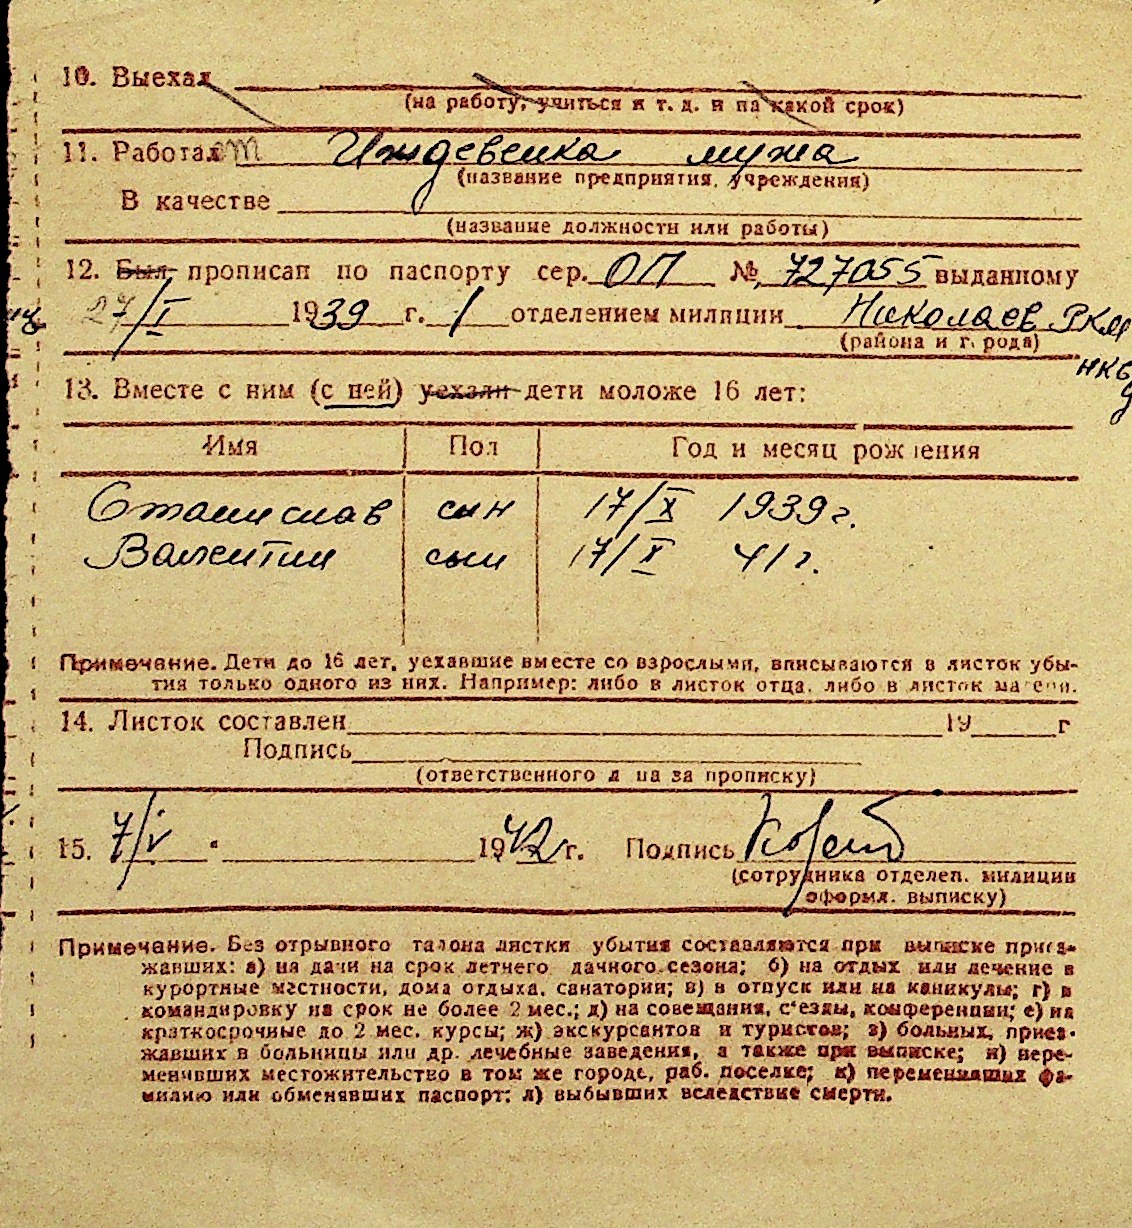 10. Выехал
(на работу, учиться и т. д. и на какой срок)
11. Работает Иждевенка мужа
(название предприятия, учреждения)
В качестве
(название должности или работы)
12. Был прописан по паспорту сер. ОП № 727055 выданному
27/I 1939 г. 1 отделением милиции Николаев РКМ
(района и города)
НКВД
13. Вместе с ним (с ней) уехали дети моложе 16 лет:
Имя Пол Год и месяц рождения
Станислав сын 17/X 1939 г.
Валентин сын 17/X 41 г.
Примечание. Дети до 16 лет, уехавшие вместе со взрослыми, вписываются в листок убы-
тия только одного из них. Например: либо в листок отца, либо в листок матери.
14. Листок составлен 19 г
Подпись
(ответственного лица за прописку)
15. 7/V 1942 г. Подпись
(сотрудника отделен. милиции
оформл. выписку)
Примечание. Без отрывного талона листки убытия составляются при выписке приез-
жавших: а) на дачи на срок летнего дачного сезона; б) на отдых или лечение в
курортные местности, дома отдыха, санатории; в) в отпуск или на каникулы; г) в
командировку на срок не более 2 мес.; д) на совещания, с'езды, конференции; е) на
краткосрочные до 2 мес. курсы; ж) экскурсантов и туристов; з) больных, приез-
жавших в больницы или др. лечебные заведения, а также при выписке; и) пере-
менивших местожительство в том же городе, раб. поселке; к) переменивших фа-
милию или обменявших паспорт; л) выбывших вследствие смерти.